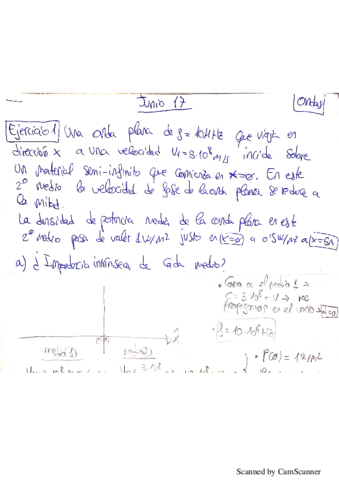 Junio 17
Ondas
Ejercicio 1 Una onda plana de f = 10MHz que viaja en
dirección x a una velocidad V1 = 3·10⁸ m/s incide sobre
un material semi-infinito que comienza en x=0. En este
2º medio la velocidad de fase de la onda plana se reduce a
la mitad.
La densidad de potencia media de la onda plana en este
2º medio pasa de valer 1W/m² justo en x=0 a 0'5W/m² a x=5m
a) ¿Impedancia intrínseca de cada medio?
• Como en el medio 1 →
C = 3·10⁸ = V → nos
propagamos en el vacío → α=0
f = 10·10⁶ Hz
x
medio 1)
medio 2)
• P(0) = 1W/m²
Scanned by CamScanner